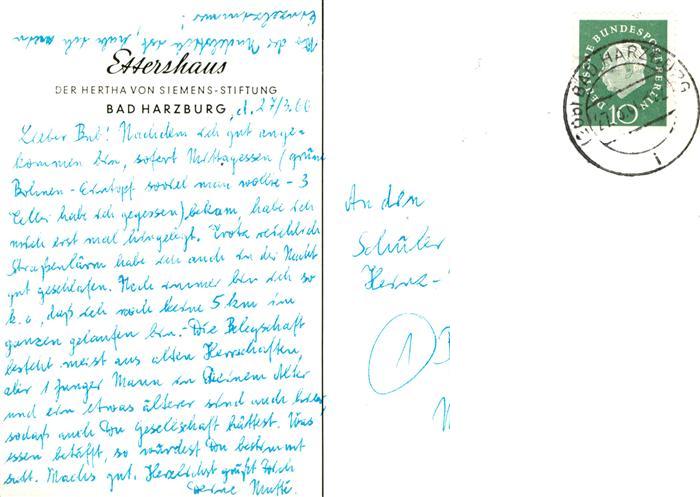 Wo der Nadelstich ist, hab ich mein
Einzelzimmer!
Ettershaus
DER HERTHA VON SIEMENS-STIFTUNG
BAD HARZBURG, d. 27/3.60
Lieber Bub! Nachdem ich gut ange-
kommen bin, sofort Mittagessen (grüne
Bohnen-Eintopf soviel man wollte - 3
Teller habe ich gegessen) bekam, habe ich
mich erst mal hingelegt. Trotz reichlich
Straßenlärm habe ich auch in der Nacht
gut geschlafen. Noch immer bin ich so
k.o, daß ich noch keine 5 km im
ganzen gelaufen bin.- Die Belegschaft
besteht meist aus alten Herrschaften,
aber 1 junger Mann in Deinem Alter
und ein etwas älterer sind auch
sodaß auch Du Gesellschaft hättest. Was
essen betrifft, so würdest Du bestimmt
satt. Machs gut. Herzlichst grüßt Dich
Deine Mutti.
DEUTSCHE BUNDESPOST BERLIN
10
BAD HARZBURG
An den
Schüler
Heinz-
1